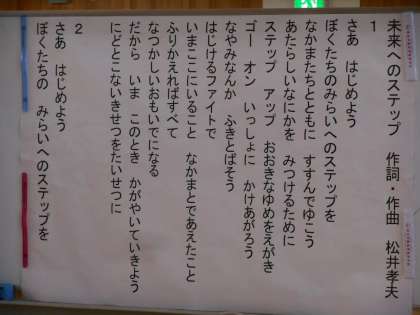 未来へのステップ　作詞・作曲　松井孝夫
1
さあ　はじめよう
ぼくたちのみらいへのステップを
なかまたちとともに　すすんでゆこう
あたらしいなにかを　みつけるために
ステップ　アップ　おおきなゆめをえがき
ゴー　オン　いっしょに　かけあがろう
なやみなんか　ふきとばそう
はじけるファイトで
いまここにいること　なかまとであえたこと
ふりかえればすべて
なつかしいおもいでになる
だから　いま　このとき　かがやいていきよう
にどとこないきせつをたいせつに
2
さあ　はじめよう
ぼくたちの　みらいへのステップを